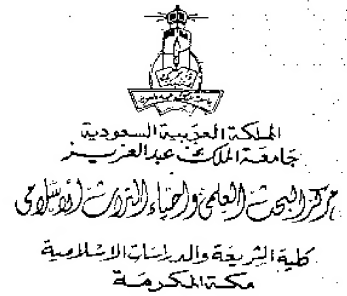 المملكة العربية السعودية
جامعة الملك عبد العزيز
مركز البحث العلمي وإحياء التراث الإسلامي
كلية الشريعة والدراسات الإسلامية
مكة المكرمة